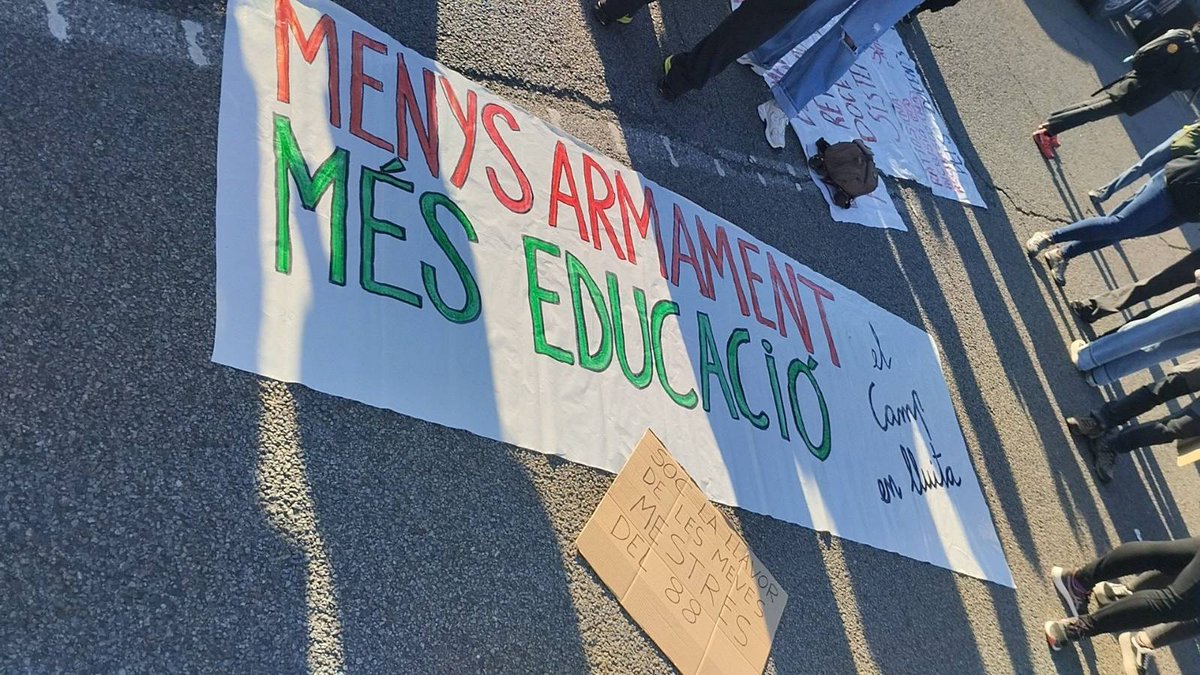 MENYS ARMAMENT
MÉS EDUCACIÓ
el
Camp
en lluita
SOC LA LLAVOR
DE LES MEVES
MESTRES
DEL 88